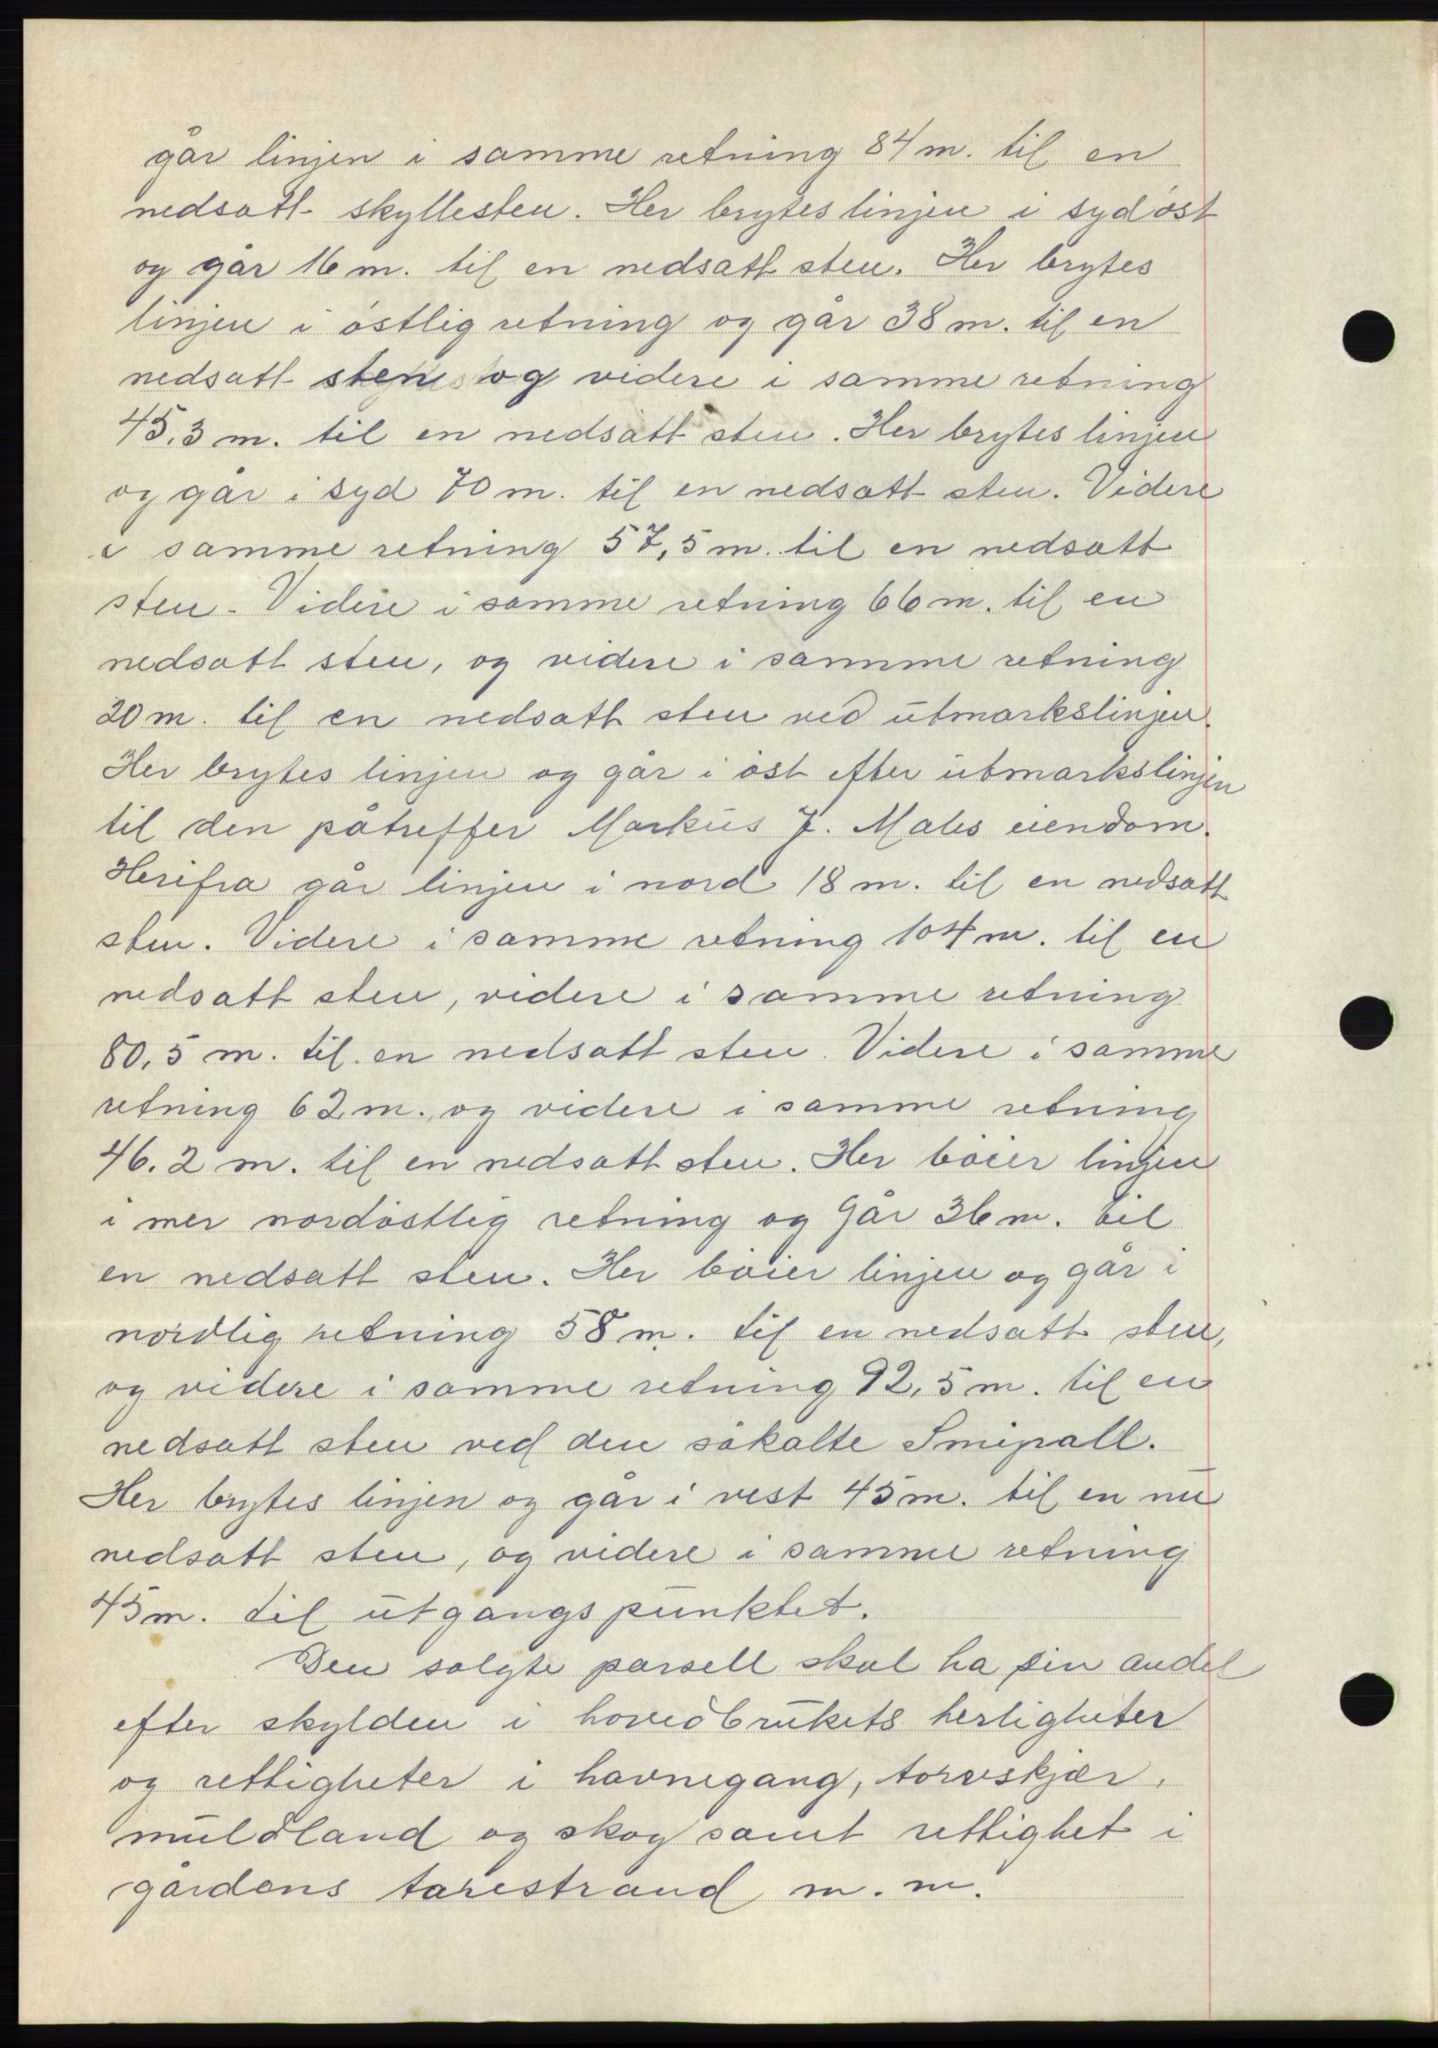 går linjen i samme retning 84 m. til en
nedsatt skyllesten. Her brytes linjen i sydöst
og går 16 m. til en nedsatt sten. Her brytes
linjen i östlig retning og går 38 m. til en
nedsatt sten og videre i samme retning
45,3 m. til en nedsatt sten. Her brytes linjen
og går i syd 70 m. til en nedsatt sten. Videre
i samme retning 57,5 m. til en nedsatt
sten. Videre i samme retning 66 m. til en
nedsatt sten, og videre i samme retning
20 m. til en nedsatt sten ved utmarkslinjen.
Her brytes linjen og går i öst efter utmarkslinjen
til den påtreffer Markus J. Males eiendom.
Herifra går linjen i nord 18 m. til en nedsatt
sten. Videre i samme retning 104 m. til en
nedsatt sten, videre i samme retning
80,5 m. til en nedsatt sten. Videre i samme
retning 62 m. og videre i samme retning
46.2 m. til en nedsatt sten. Her böier linjen
i mer nordöstlig retning og går 36 m. til
en nedsatt sten. Her böier linjen og går i
nordlig retning 58 m. til en nedsatt sten,
og videre i samme retning 92,5 m. til en
nedsatt sten ved den såkalte Smipall.
Her brytes linjen og går i vest 45 m. til en nu
nedsatt sten, og videre i samme retning
45 m. til utgangspunktet.
Den solgte parsell skal ha sin andel
efter skylden i hovedbrukets herligheter
og rettigheter i havnegang, torvskjær,
muldland og skog samt rettighet i
gårdens tarestrand m. m.